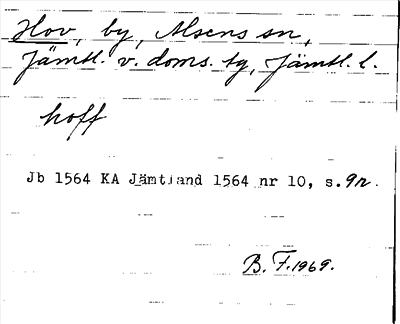 Hov, by, Alsens sn,
Jämtl. v. doms. tg, Jämtl. l.
hoff
Jb 1564 KA Jämtland 1564 nr 10, s. 9r.
B. F. 1969.